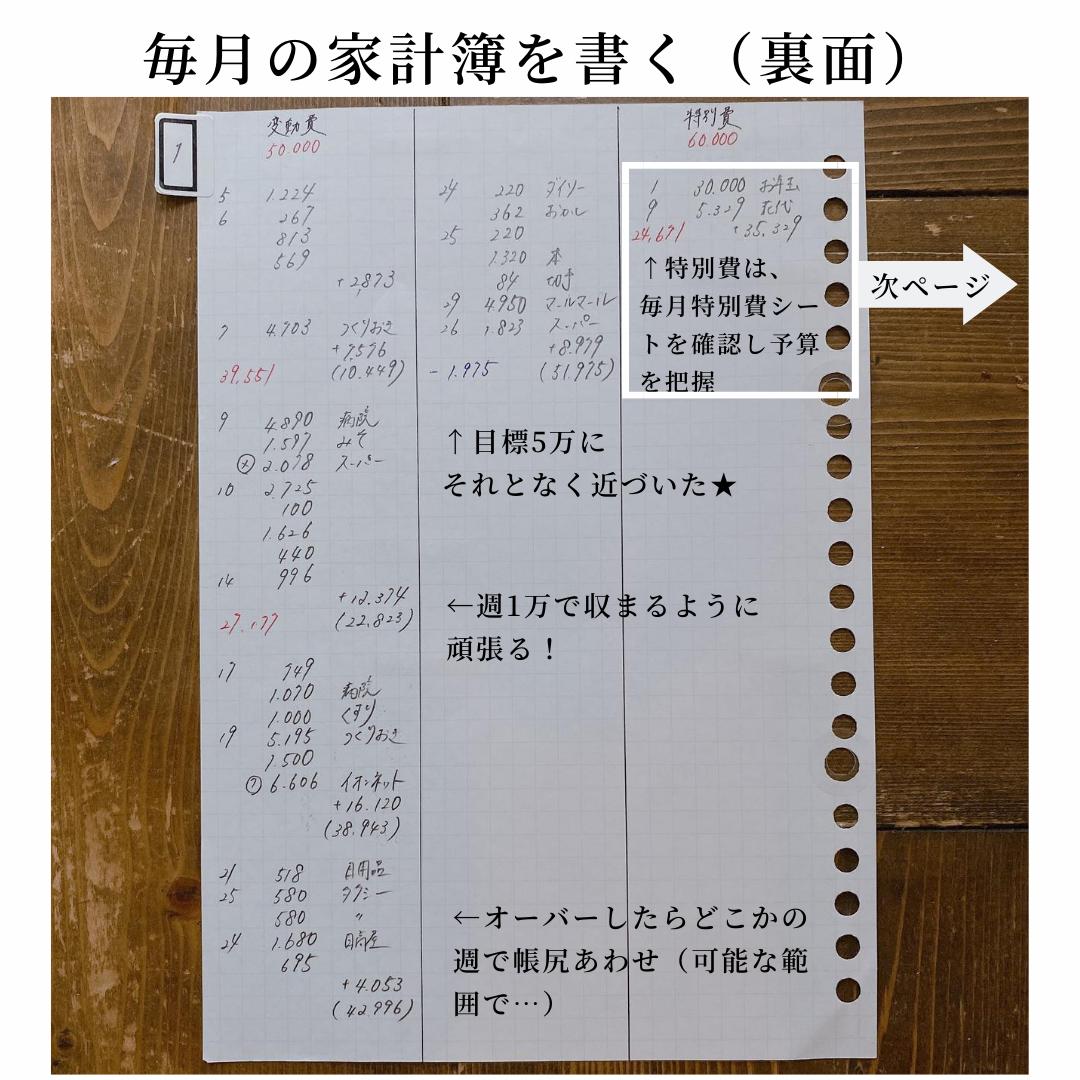 毎月の家計簿を書く（裏面）
1
変動費
50.000
5 1.224
6 267
813
569
+2873
7 4.703 つくりおき
+7,576
39,551 (10.449)
9 4.890 病院
1.597 みそ
2.078 スーパー
10 2.725
100
1.626
440
14 996
+12.374
27,177 (22,823)
17 749
1.070 病院
1.000 くすり
19 5.195 つくりおき
1.500
6.606 イオンネット
+16.120
(38,943)
21 518 日用品
25 580 タクシー
580 〃
24 1.680
695
+4.053
(42.996)
24 220 ダイソー
362 おかし
25 220
1.320 本
84 切手
29 4.950 マールマール
26 1.823 スーパー
+8.979
-1.975 (51.975)
↑目標5万に
それとなく近づいた★
←週1万で収まるように
頑張る！
←オーバーしたらどこかの
週で帳尻あわせ（可能な範
囲で…）
特別費
60.000
1 30.000 お年玉
9 5.329 花代
24,671 +35,329
↑特別費は、
毎月特別費シー
トを確認し予算
を把握
次ページ